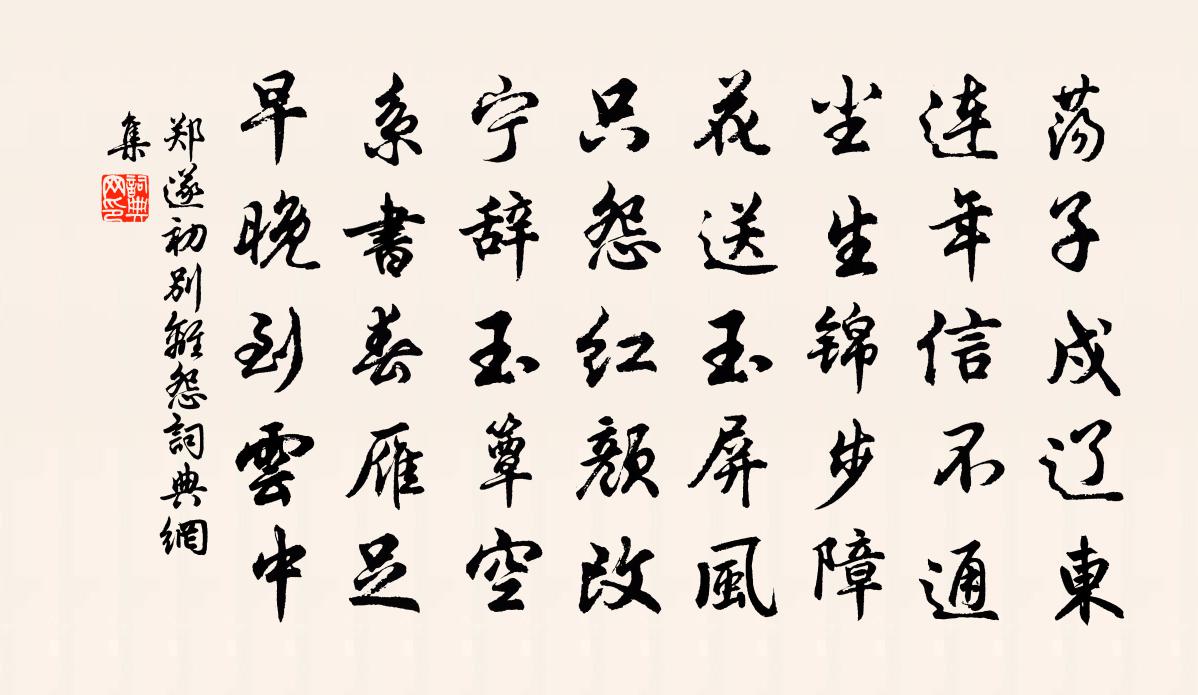 荡子戍辽东
连年信不通
尘生锦步障
花送玉屏風
只怨红颜改
宁辞玉簟空
系書春雁足
早晚到雲中
郑遂初别離怨詞典網
集
詞典
网印